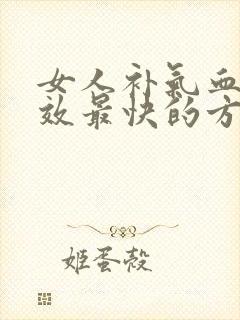 女人补气血
效最快的方
姬蛋壳